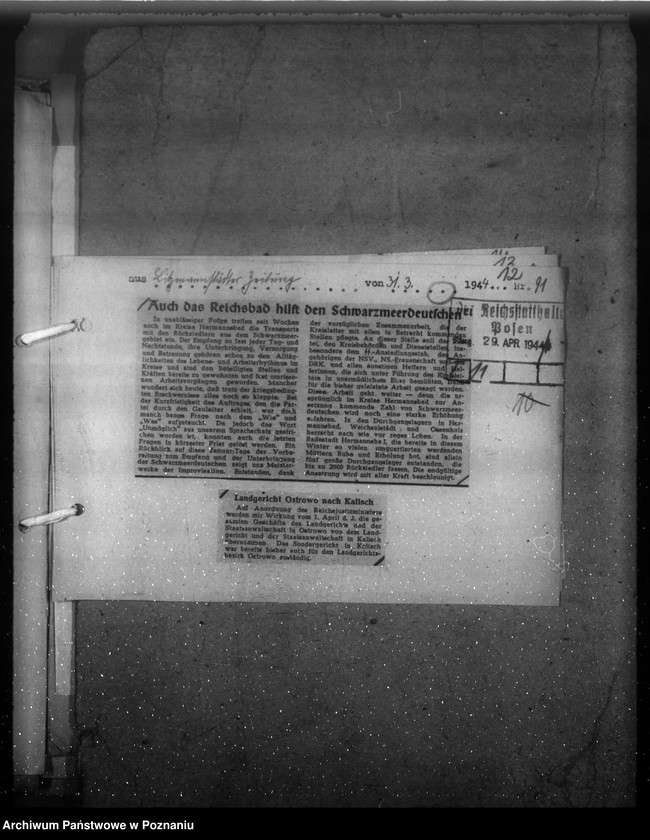 12
12
aus Litzmannstädter Zeitung von 31.3. 1944 Nr. 91
Auch das Reichsbad hilft den Schwarzmeerdeutschen
Der Reichsstatthalter
Posen
29. APR. 1944
11
10
In unablässiger Folge treffen seit Wochen
auch im Kreise Hermannsbad die Transporte
mit den Rücksiedlern aus dem Schwarzmeer-
gebiet ein. Der Empfang zu fast jeder Tag- und
Nachtstunde, ihre Unterbringung, Versorgung
und Betreuung gehören schon zu dem Alltäg-
lichkeiten des Lebens- und Arbeitsrhythmus im
Kreise und sind den beteiligten Stellen und
Kräften bereits zu gewohnten und fest umrisse-
nen Arbeitsvorgängen geworden. Mancher
wundert sich heute, daß trotz der kriegsbeding-
ten Erschwernisse alles noch so klappte. Bei
der Kurzfristigkeit des Auftrages, den die Par-
tei durch den Gauleiter erhielt, war doch
manch bange Frage nach dem „Wie" und
„Was" aufgetaucht. Da jedoch das Wort
„Unmöglich" aus unserem Sprachschatz gestri-
chen worden ist, konnten auch die letzten
Fragen in kürzester Frist gelöst werden. Ein
Rückblick auf diese Januar-Tage der Vorbe-
reitung zum Empfang und der Unterbringung
der Schwarzmeerdeutschen zeigt uns Meister-
werke der Improvisation. Entstanden, dank
der vorzüglichen Zusammenarbeit, die der
Kreisleiter mit allen in Betracht kommenden
Stellen pflegte. An dieser Stelle soll der Par-
tei, den Kreisbehörden und Dienststellen, ins-
besondere dem SS-Ansiedlungsstab, den An-
gehörigen der NSV., NS.-Frauenschaft und
DRK. und allen sonstigen Helfern und Hel-
ferinnen, die sich unter Führung des Kreislei-
ters in unermüdlichem Eifer bemühten, Dank
für die bisher geleistete Arbeit gesagt werden.
Diese Arbeit geht weiter — denn die ur-
sprünglich im Kreise Hermannsbad für An-
setzung kommende Zahl von Schwarzmeer-
deutschen wird noch eine starke Erhöhung
erfahren. In den Durchgangslagern in Her-
mannsbad, Weichselstädt und Gasenholm
herrscht nach wie vor reges Leben. In der
Badestadt Hermannsbad, die bereits in diesem
Winter so vielen umquartierten werdenden
Müttern Ruhe und Erholung bot, sind allein
fünf große Durchgangslager entstanden, die
bis zu 2000 Rücksiedler fassen. Die endgültige
Ansetzung wird mit aller Kraft beschleunigt.
Landgericht Ostrowo nach Kalisch
Auf Anordnung des Reichsjustizministers
werden mit Wirkung vom 1. April d. J. die ge-
samten Geschäfte des Landgerichts und der
Staatsanwaltschaft in Ostrowo von dem Land-
gericht und der Staatsanwaltschaft in Kalisch
übernommen. Das Sondergericht in Kalisch
war bereits bisher auch für den Landgerichts-
bezirk Ostrowo zuständig.
Archiwum Państwowe w Poznaniu